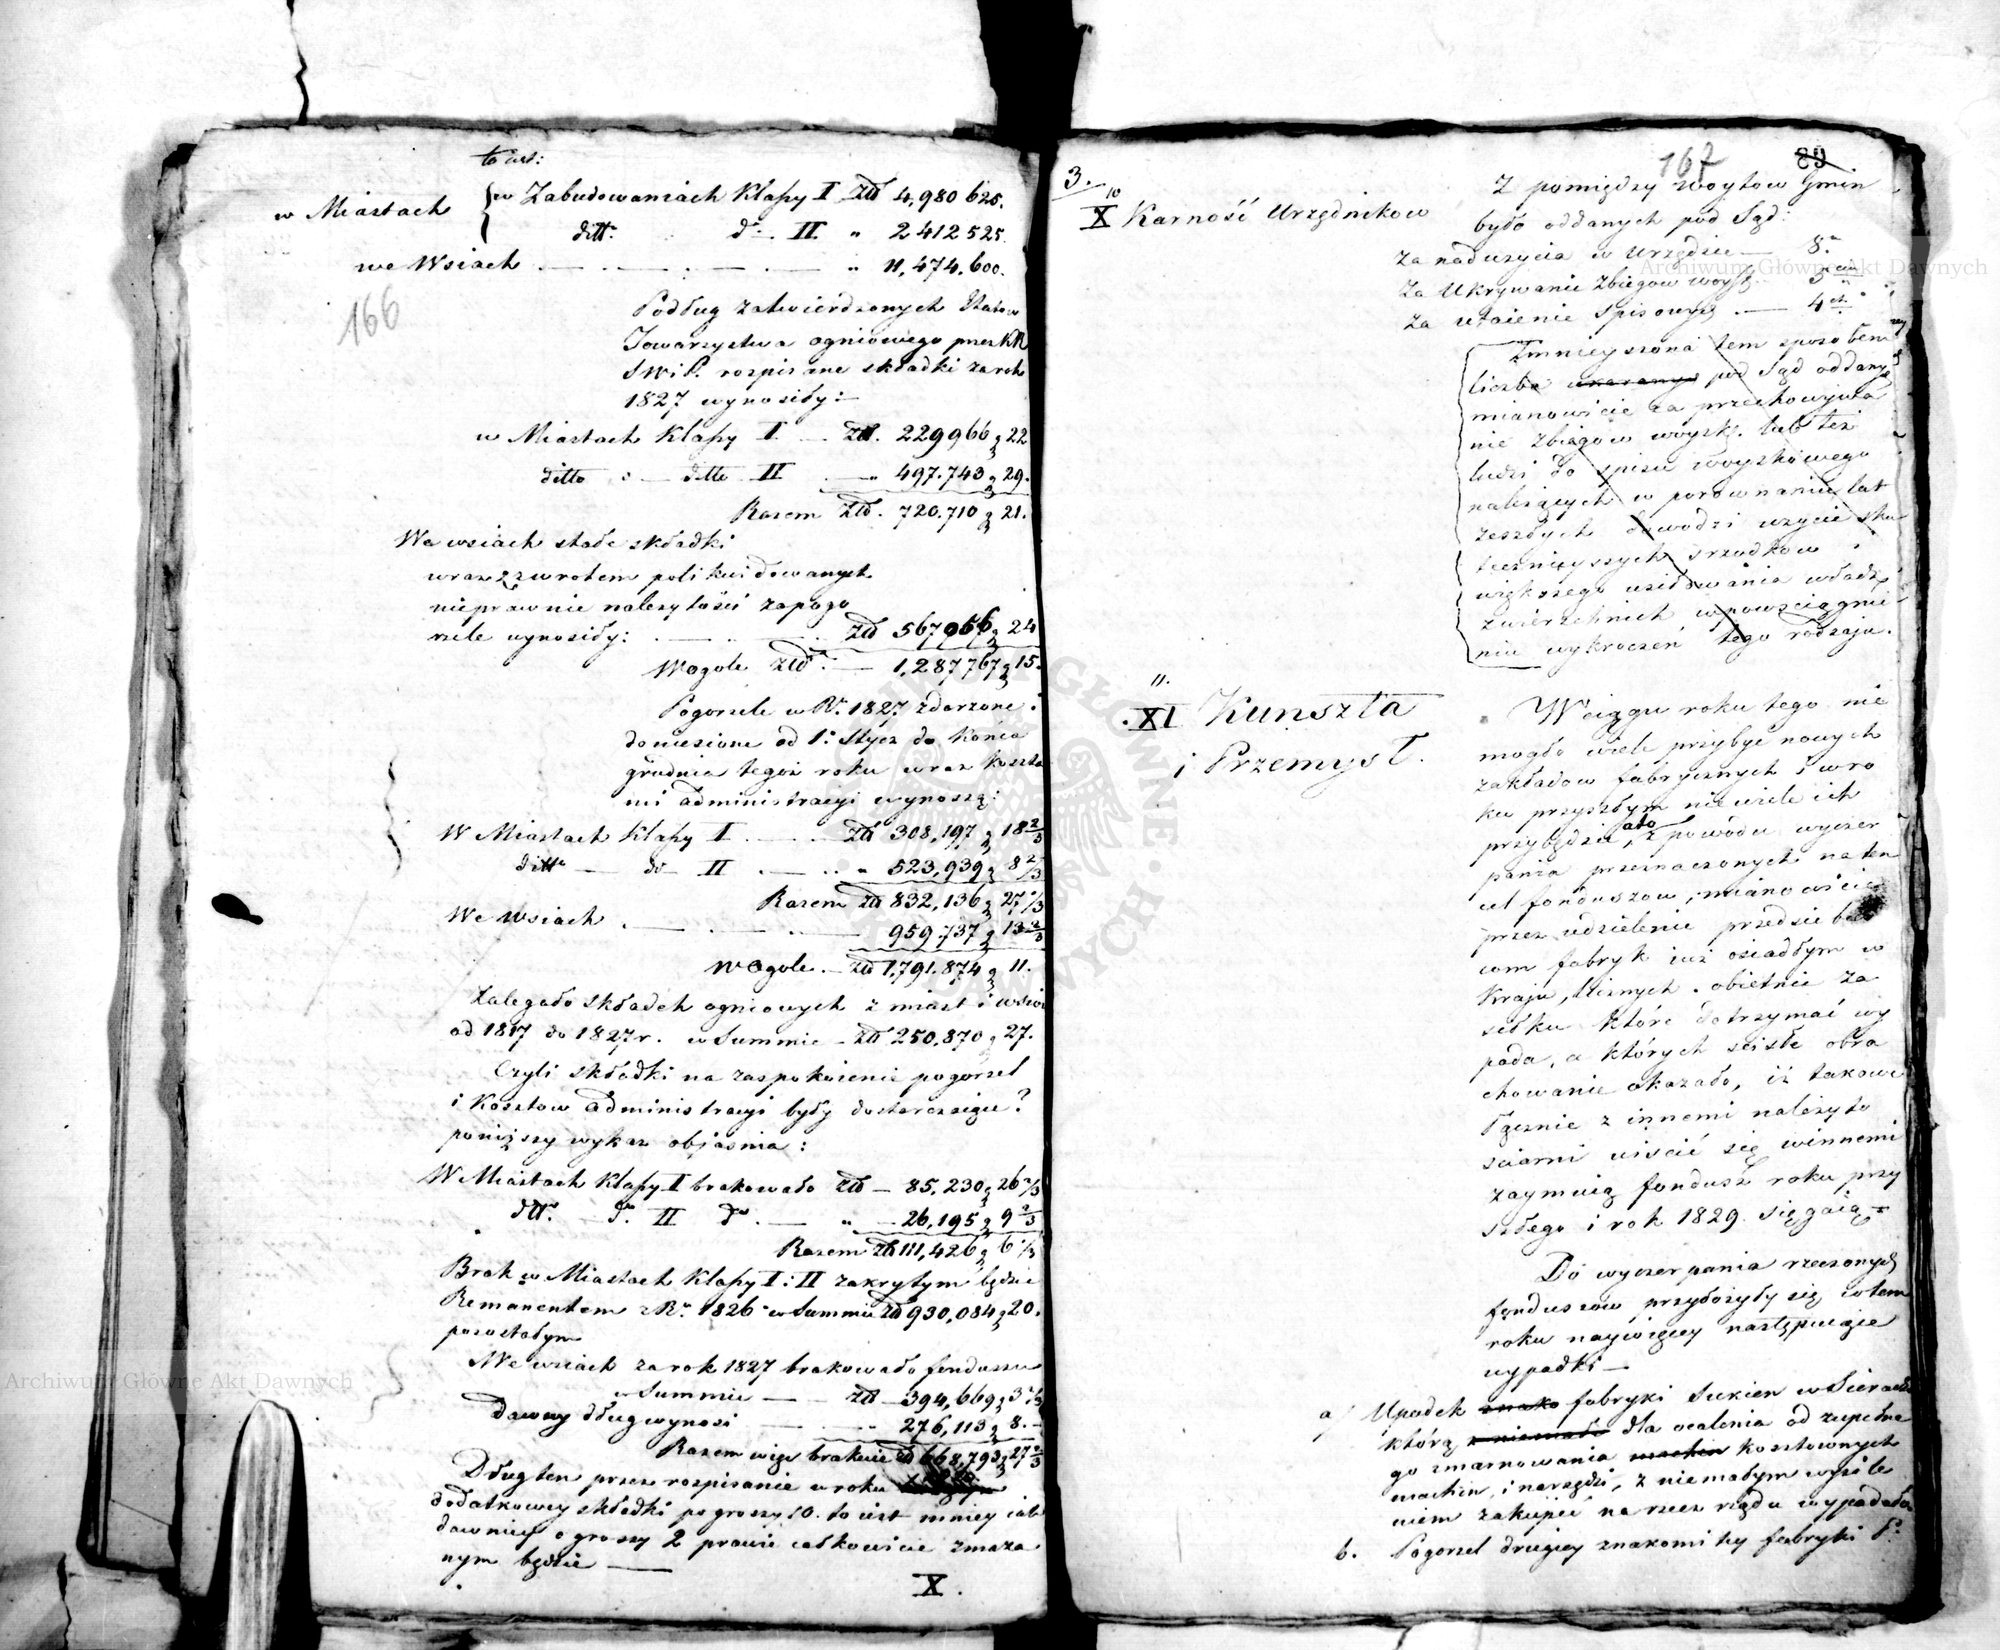 to iest:
w Miastach { w Zabudowaniach Klassy I Złł 4,980 625.
ditt° d° II. " 2 412 525.
we Wsiach — — . — — .. 11,474.600.
166
Podług zatwierdzonych Etatow
Towarzystwa ogniowego przez KR
SWiP. rozpisane składki za rok
1827 wynosiły:—
w Miastach Klassy I. — Złł. 229966 g 22
ditto : — ditto II — " 497.743 g 29.
Razem Złł. 720.710 g 21.
We wsiach stałe składki
wraz z zwrotem polikwidowanych
nieprawnie należytości za pogo
rzele wynosiły: — — Złł 567 056 g 24
Wogole Złł — 1,287 767 g 15.
Pogorzele w R. 1827 zdarzone i
doniesione od 1° Stycz do Końca
grudnia tegoż roku wraz koszta
mi administracyi wynoszą:
W Miastach Klassy I — Złł 308,197 g 18 2/3
ditt° — do II — .. " 523,939 g 8 2/3
Razem Złł 832,136 g 27 1/3
We Wsiach . — — 959.737 g 13 2/3
Wogole — Złł 1,791.874 g 11.
Zalegało składek ogniowych z miast i wsiow
od 1817 do 1827 r. w Summie — Złł 250,870 g 27.
Czyli składki na zaspokoienie pogorzel
i Kosztow administracyi były dostarczaiące?
poniższy wykaz objasnia:
W Miastach Klassy I brakowało Złł — 85,230 g 26 2/3
ditt° — d° II d° — " — 26,195 g 9 2/3
Razem Złł 111,426 g 6 1/3
Brak w Miastach Klassy I i II zakrytym będzie
Remanentem z R. 1826 w Summie Złł 930,084 g 20.
pozostałym
We wsiach za rok 1827 brakowało funduszu
w Summie — Złł — 394,669 g 3 1/3
Dawny dług wynosi — — 276,113 g 8. —
Razem więc brakuie Złł 668,793 g 27 2/3
Dług ten przez rozpisanie w roku
dodatkowey składki po groszy 10. to iest mniey iak
dawniey o groszy 2 prawie całkowicie zmaza
nym będzie —
X.
3.
167
89
10
X Karność Urzędnikow
Z pomiędzy Woytow Gmin
było oddanych pod Sąd:
Za nadużycia w Urzędzie — 8.
Za Ukrywanie Zbiegow woysk — 5
Za utaienie Spisowych . — 4
Zmnieyszona tem sposobem
liczba pod Sąd oddanych
mianowicie za przechowywa
nie zbiegow woysk. lub też
ludzi do spisu woyskowego
należących w porównaniu lat
zeszłych dowodzi użycie sku
tecznieyszych srzodkow i
większego usiłowania władz
zwierzchnich w powsciągnie
niu wykroczeń tego rodzaju.
11.
XI Kunszta
i Przemysł.
W ciągu roku tego nie
mogło wiele przybyć nowych
zakładow fabrycznych i w ro
ku przyszłym niewiele ich
przybędzie, ato z powodu wyczer
pania przeznaczonych na ten
cel funduszow, mianowicie
przez udzielenie przedsiebior
com fabryk iuż osiadłym w
Kraju, licznych obietnic za
siłku które dotrzymać wy
pada, a których scisłe obra
chowanie okazało, iż takowe
łącznie z innemi należyto
sciami uiscić się winnemi
zaymuią fundusz roku przy
szłego i rok 1829. sięgaią.
Do wyczerpania rzeczonych
funduszow przyłożyły się w tem
roku naywięcey następuiące
wypadki —
a/ Upadek fabryki Sukien w Sieradzu
którą dla ocalenia od zupełne
go zmarnowania kosztownych
machin, i narzędzi, z niemałym wysile
niem zakupić na rzecz rządu wypadało
b. Pogorzel drugiey znakomitey fabryki
Archiwum Główne Akt Dawnych
Archiwum Główne Akt Dawnych